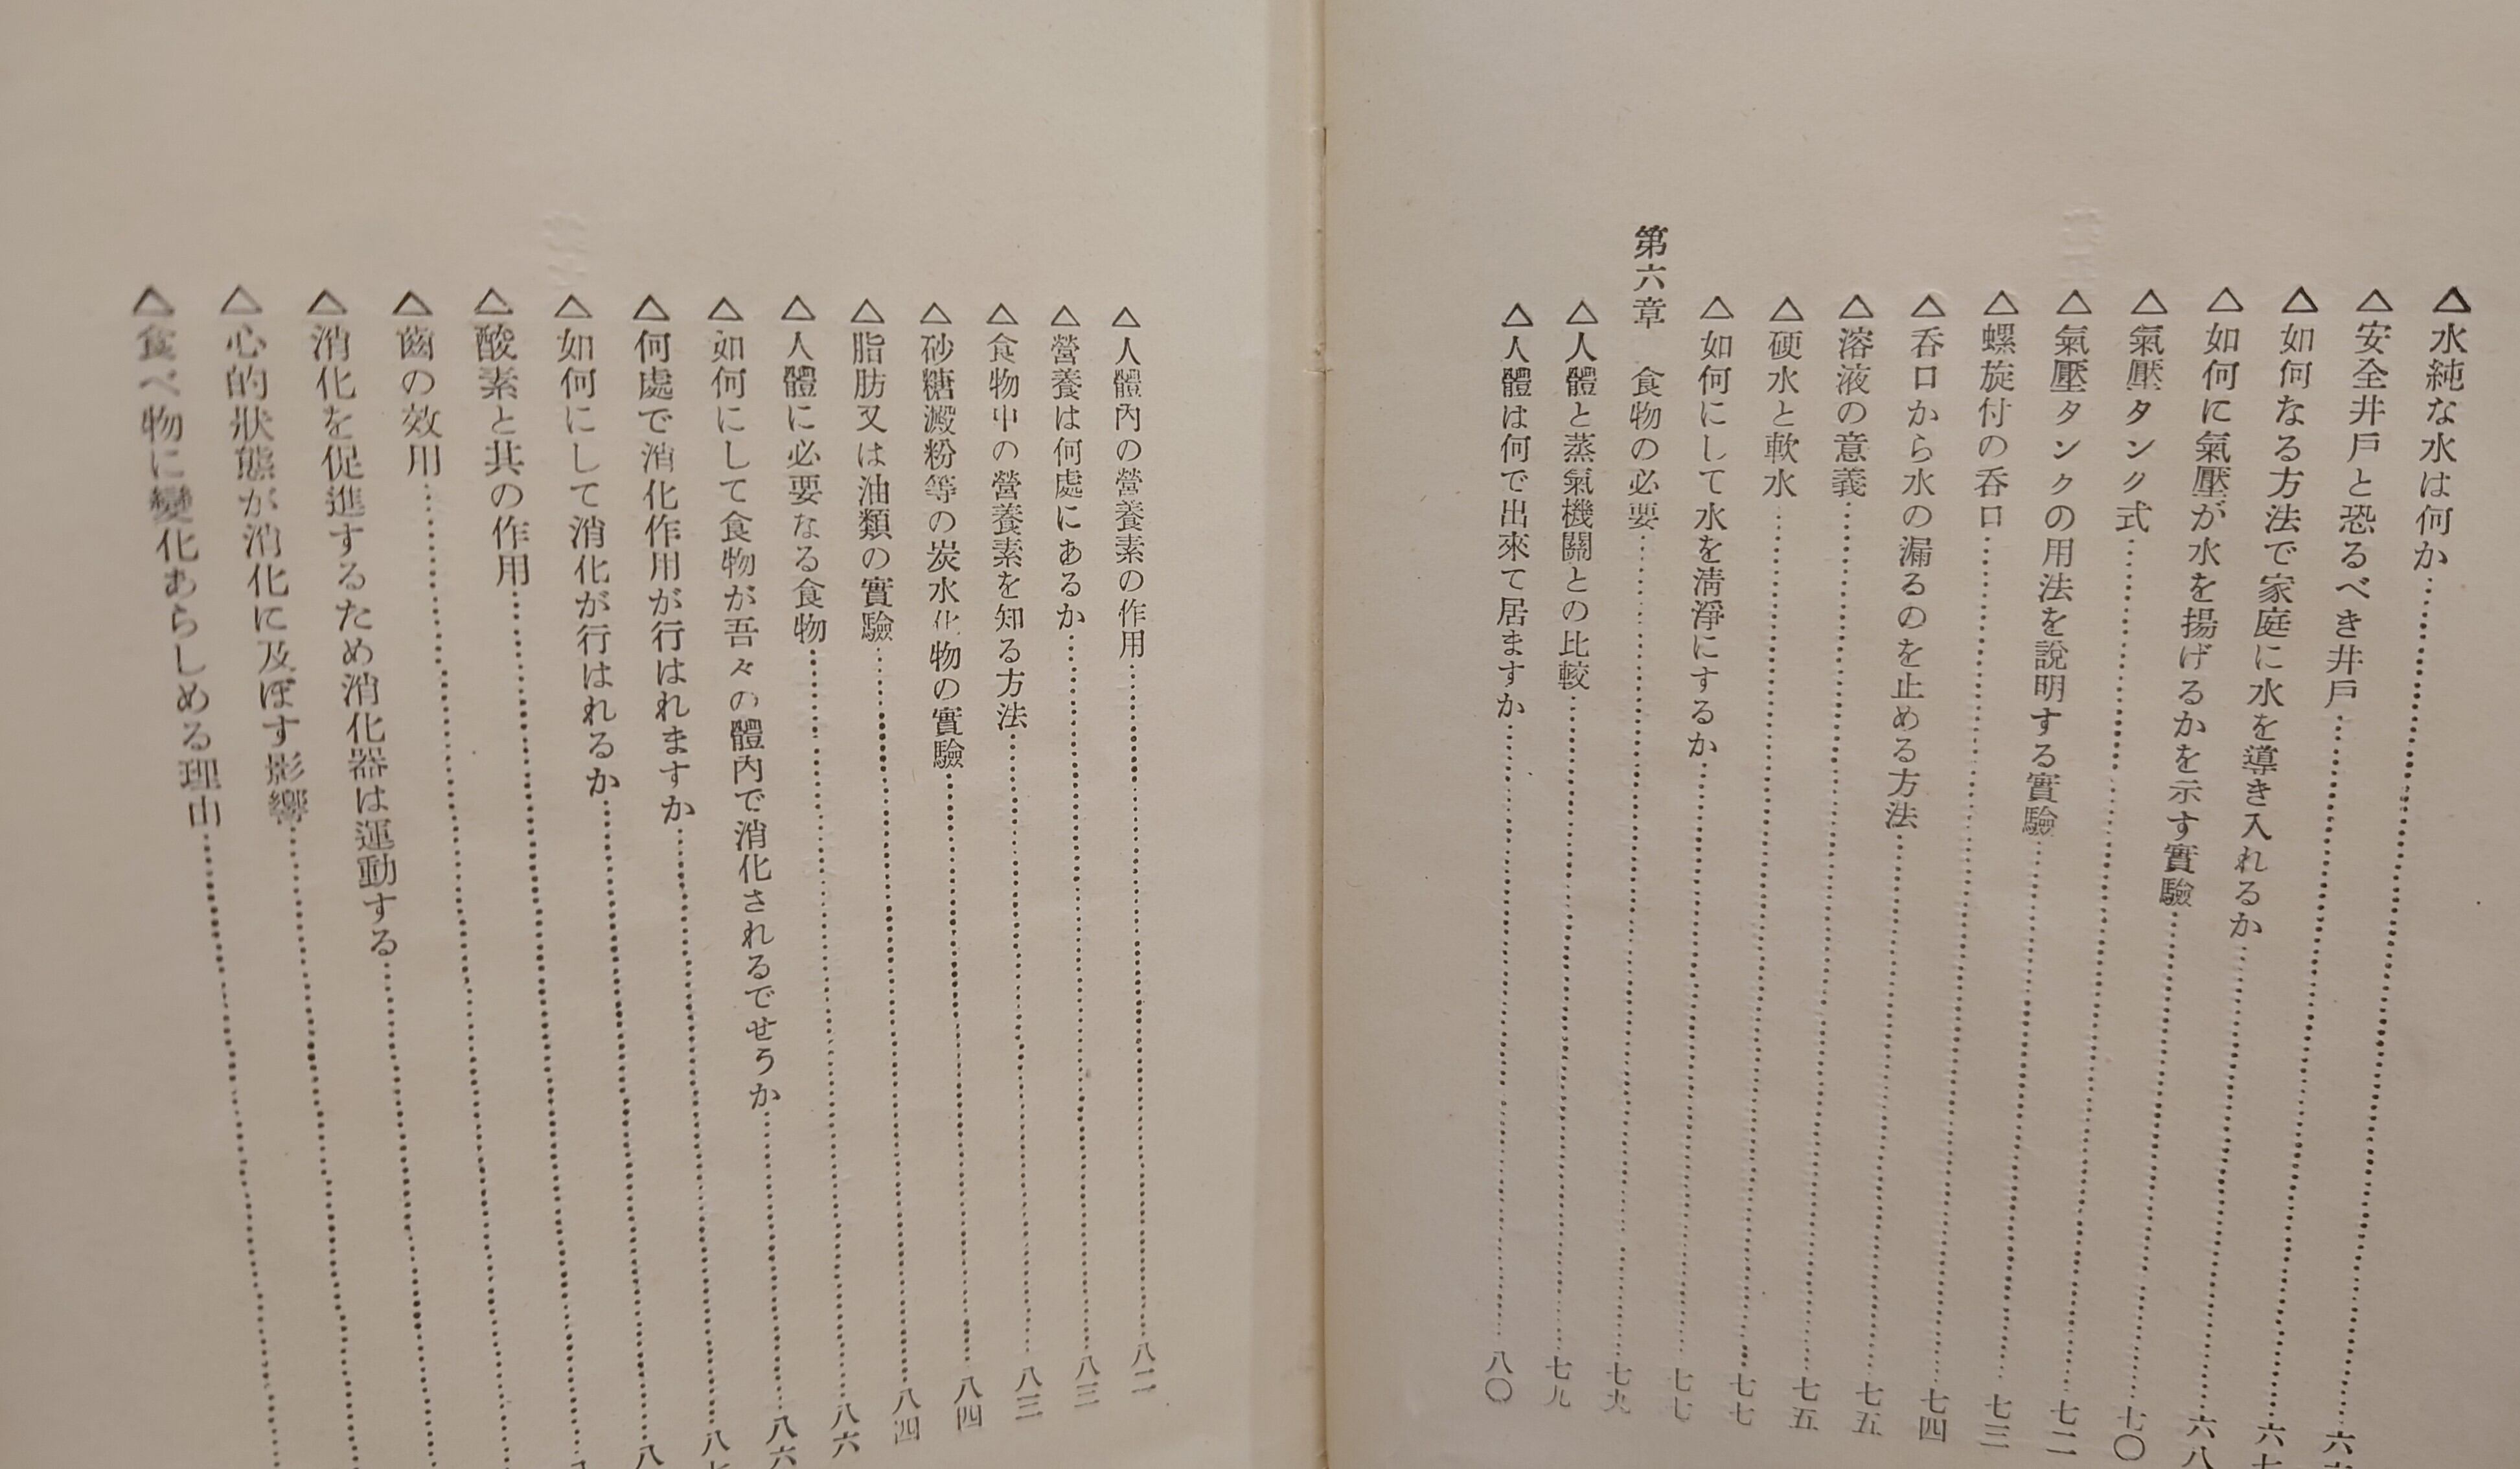 △水純な水は何か……六
△安全井戸と恐るべき井戸……六七
△如何なる方法で家庭に水を導き入れるか……六八
△如何に氣壓が水を揚げるかを示す實驗……七〇
△氣壓タンク式……七二
△氣壓タンクの用法を說明する實驗……七三
△螺旋付の呑口……七四
△呑口から水の漏るのを止める方法……七五
△溶液の意義……七五
△硬水と軟水……七七
△如何にして水を淸淨にするか……七七
第六章 食物の必要……七九
△人體と蒸氣機關との比較……七九
△人體は何で出來て居ますか……八〇
△人體內の營養素の作用……八二
△營養は何處にあるか……八三
△食物中の營養素を知る方法……八三
△砂糖澱粉等の炭水化物の實驗……八四
△脂肪又は油類の實驗……八四
△人體に必要なる食物……八六
△如何にして食物が吾々の體內で消化されるでせうか……八六
△何處で消化作用が行はれますか……八七
△如何にして消化が行はれるか……八
△酸素と其の作用……
△齒の效用……
△消化を促進するため消化器は運動する……
△心的狀態が消化に及ぼす影響……
△食べ物に變化あらしめる理由……